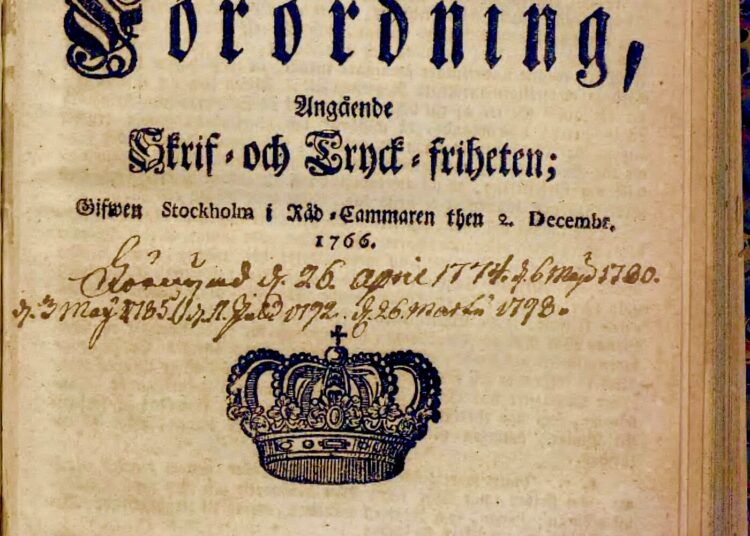 Förordning,
Angående
Skrif-och Tryck-friheten;
Gifwen Stockholm i Råd-Cammaren then 2. Decembr.
1766.
d. 26. april 1774. d. 6 Maji 1780.
d. 3 May 1785. d. 11. Julii 1792. d. 26. Martii 1798.